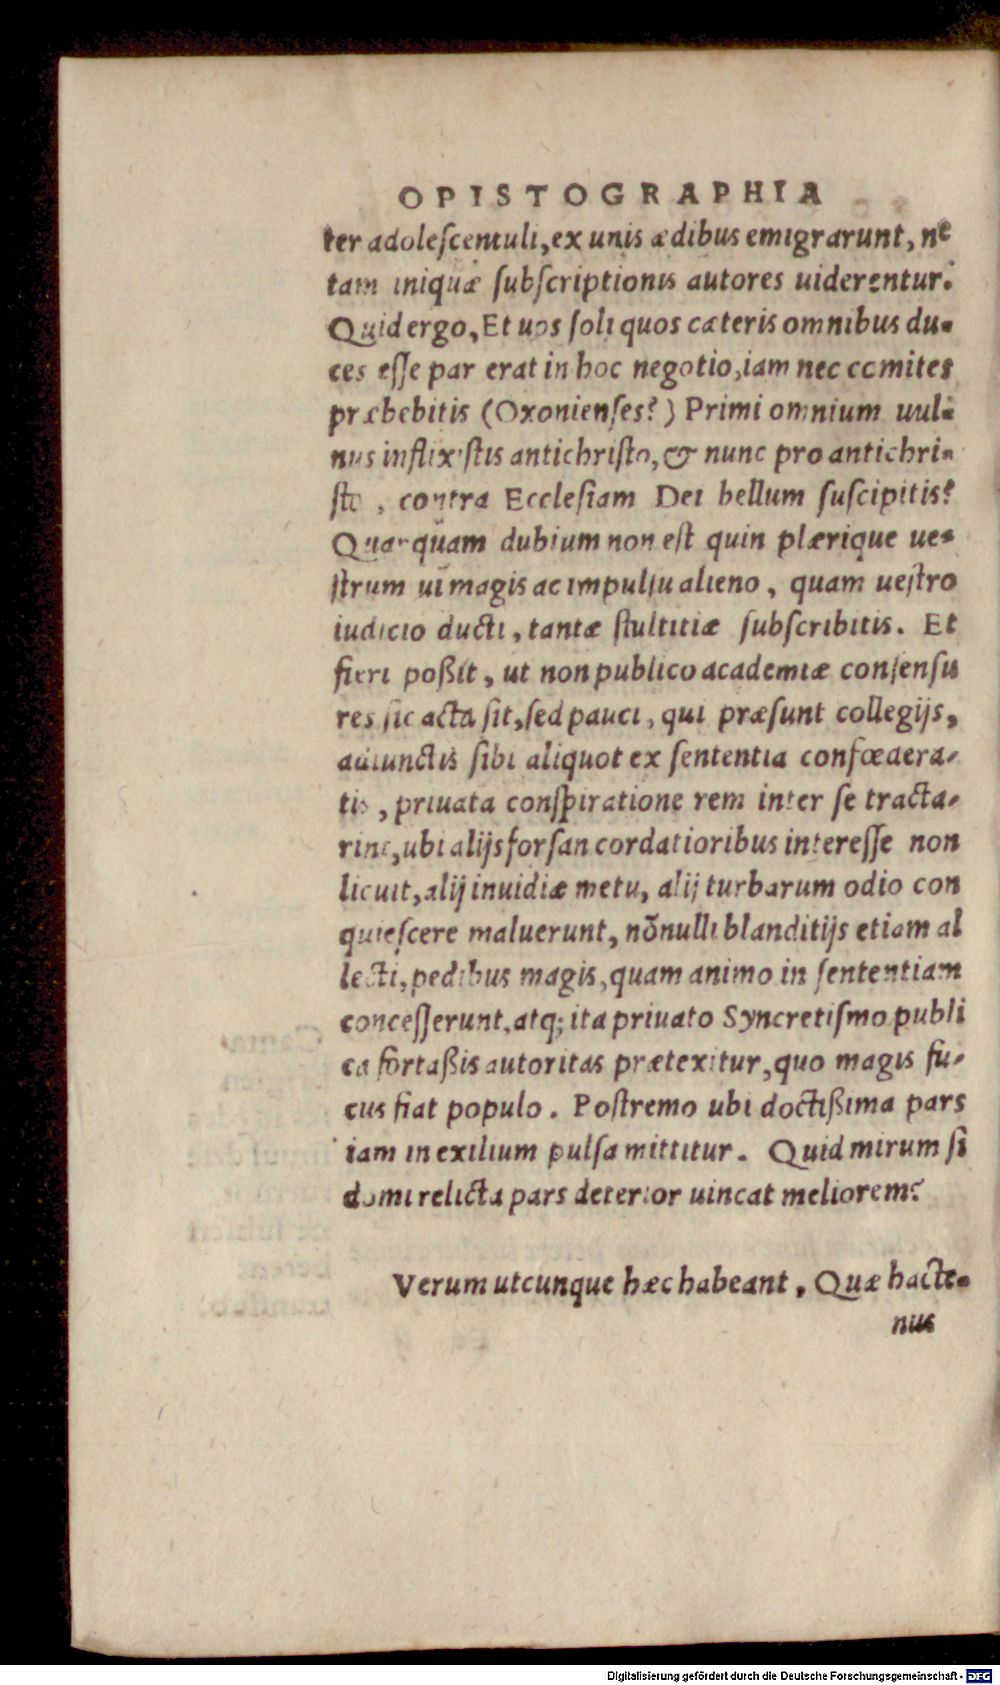 OPISTOGRAPHIA
ter adolescentuli, ex unis ædibus emigrarunt, ne
tam iniquæ subscriptionis autores uiderentur.
Quid ergo, Et uos soli quos cæteris omnibus du-
ces esse par erat in hoc negotio, iam nec comites
præbebitis (Oxonienses?) Primi omnium uul-
nus inflixistis antichristo, & nunc pro antichri-
sto, contra Ecclesiam Dei bellum suscipitis?
Quanquam dubium non est quin plærique ue-
strum ui magis ac impulsu alieno, quam uestro
iudicio ducti, tantæ stultitiæ subscribitis. Et
fieri poßit, ut non publico academiæ consensu
res sic acta sit, sed pauci, qui præsunt collegijs,
adiunctis sibi aliquot ex sententia confœdera-
tis, priuata conspiratione rem inter se tracta-
rint, ubi alijs forsan cordatioribus interesse non
licuit, alij inuidiæ metu, alij turbarum odio con
quiescere maluerunt, nõnulli blanditijs etiam al
lecti, pedibus magis, quam animo in sententiam
concesserunt, atq; ita priuato Syncretismo publi
ca fortaßis autoritas prætexitur, quo magis fu-
cus fiat populo. Postremo ubi doctißima pars
iam in exilium pulsa mittitur. Quid mirum si
domi relicta pars deterior uincat meliorem?
Verum utcunque hæc habeant, Quæ hacte-
nus
Digitalisierung gefördert durch die Deutsche Forschungsgemeinschaft - DFG